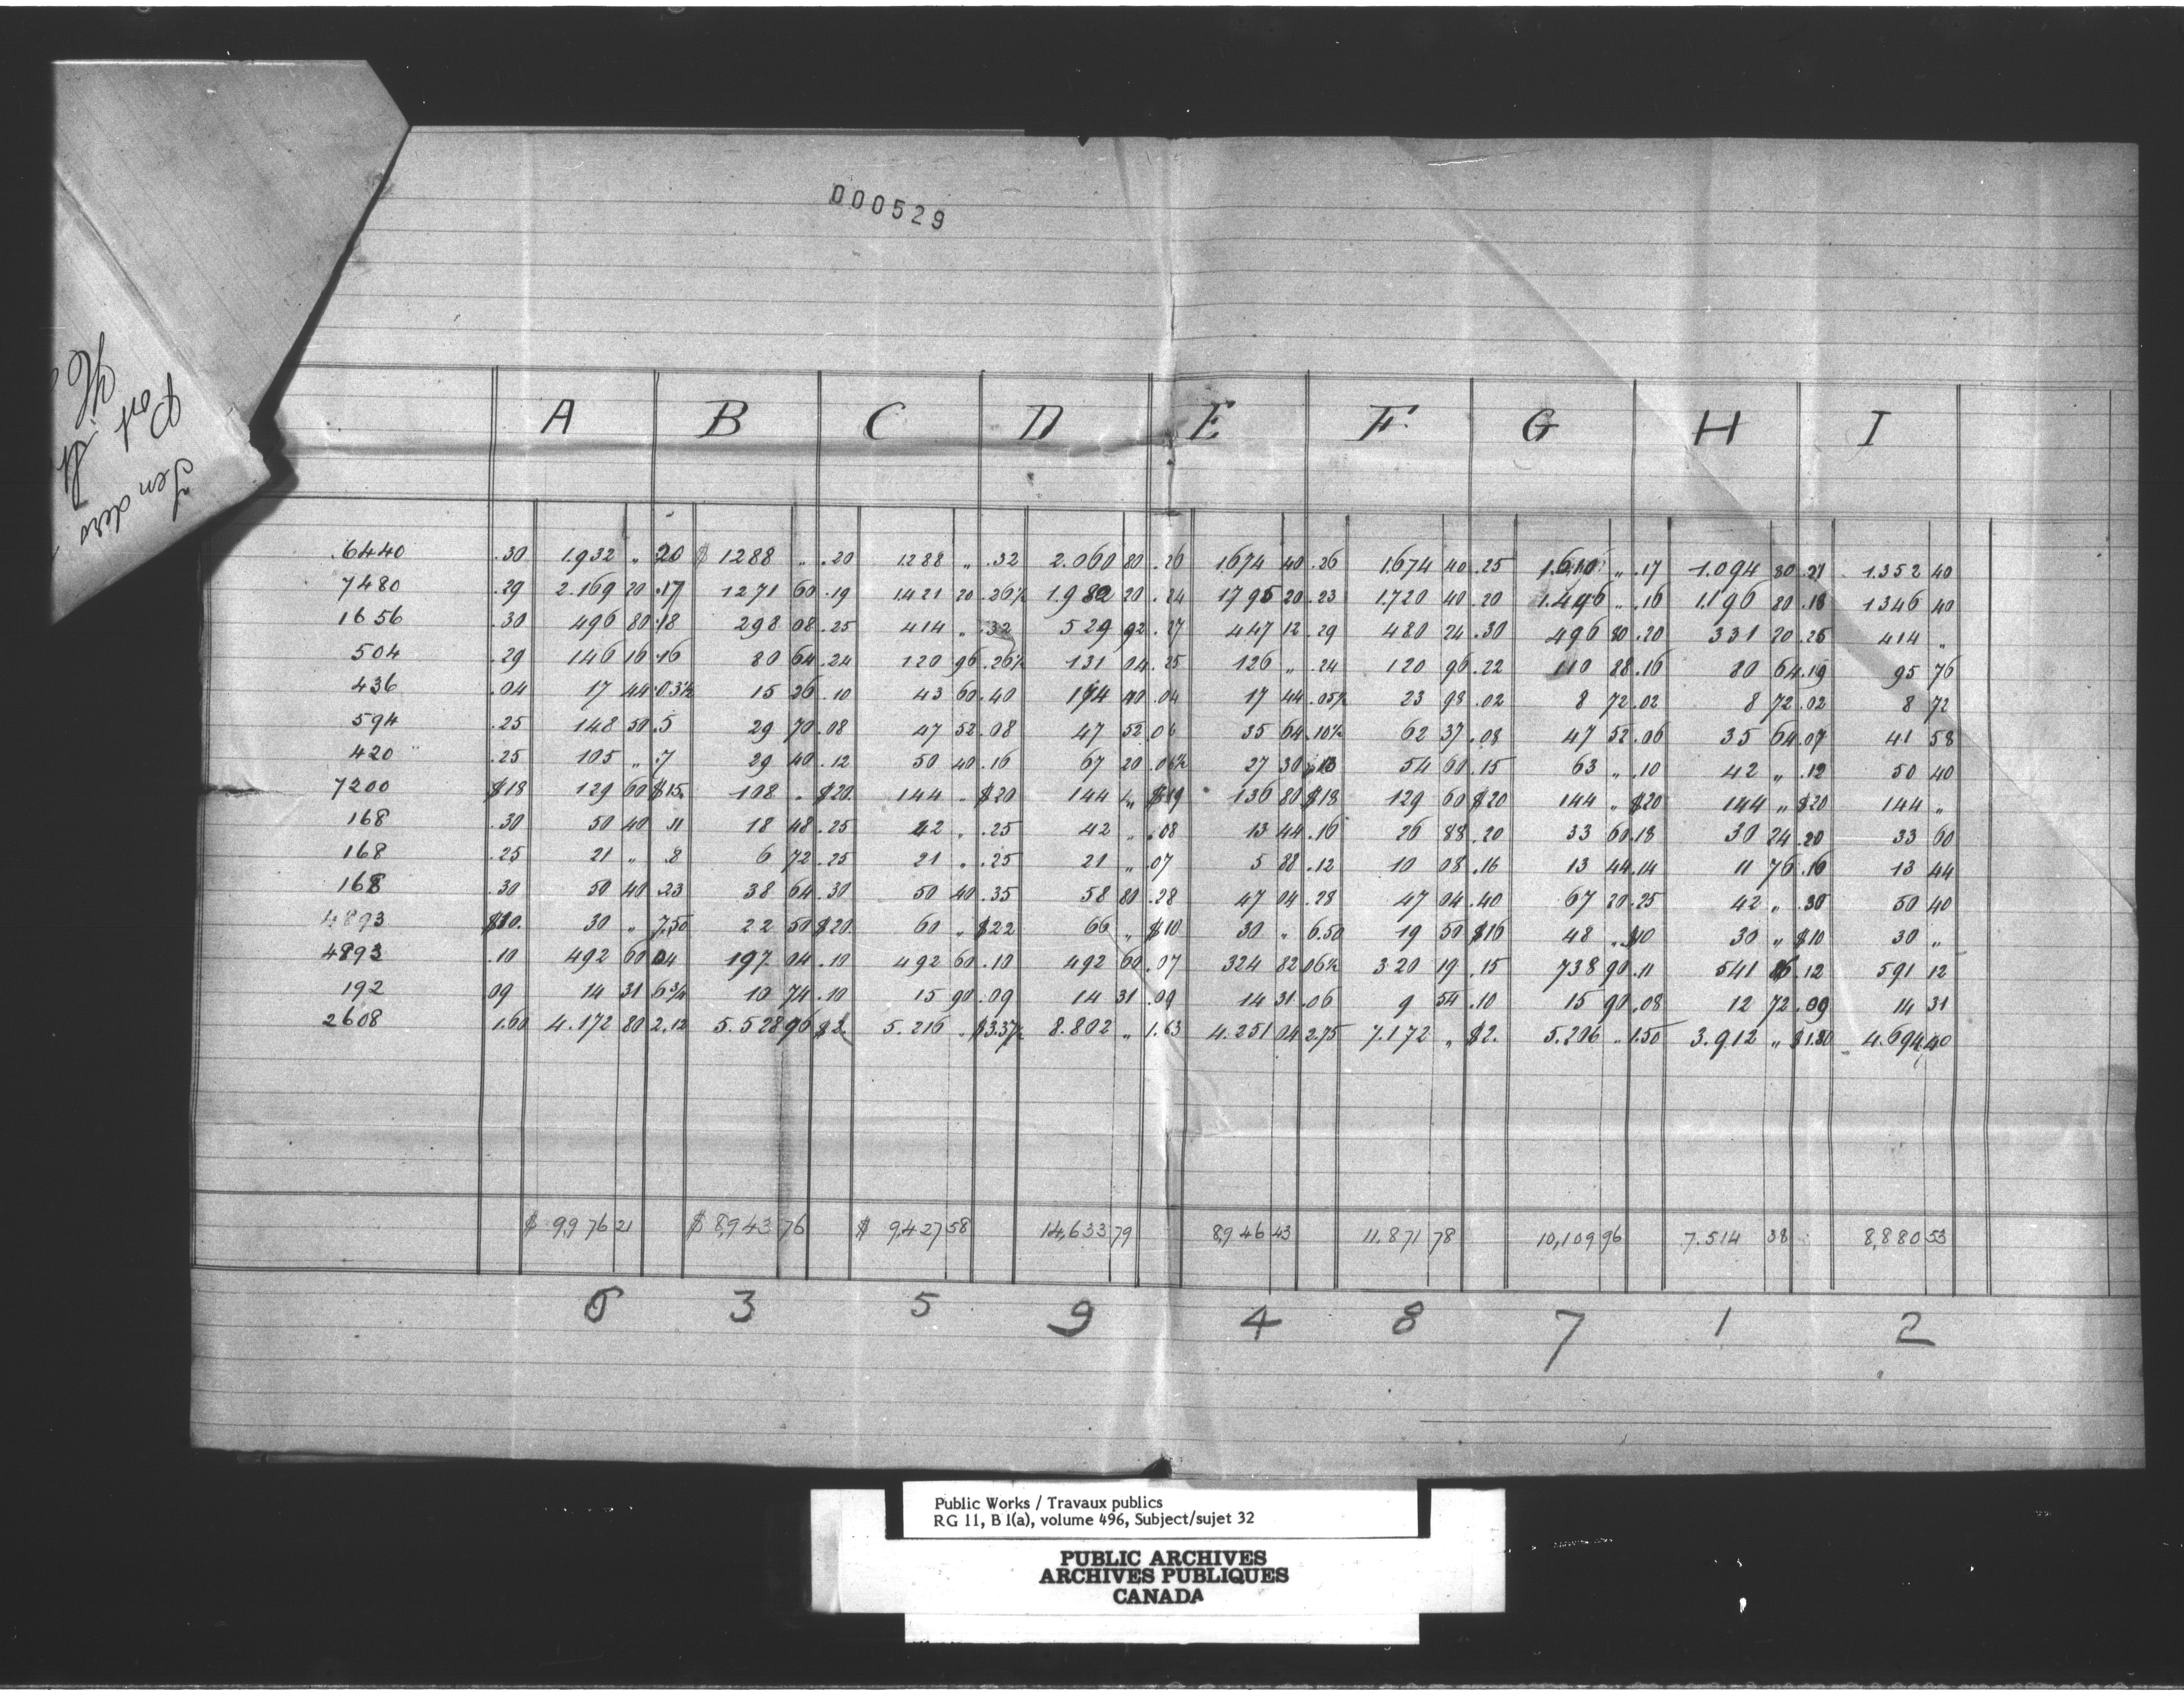 000529
Tenders
Port
A B C D E F G H I
6440 .30 1.932 „ .20 $ 1288 „ .20 1288 „ .32 2.060 80 .26 1674 40 .26 1.674 40 .25 1.610 „ .17 1.094 80 .21 1.352 40
7480 .29 2.169 20 .17 1271 60 .19 1421 20 .26½ 1.982 20 .24 1795 20 .23 1.720 40 .20 1.496 „ .16 1.196 80 .18 1346 40
1656 .30 496 80 .18 298 08 .25 414 „ .32 529 92 .27 447 12 .29 480 24 .30 496 80 .20 331 20 .25 414 „
504 .29 146 16 .16 80 64 .24 120 96 .26½ 131 04 .25 126 „ .24 120 96 .22 110 88 .16 80 64 .19 95 76
436 .04 17 44 .03½ 15 26 .10 43 60 .40 174 40 .04 17 44 .05½ 23 98 .02 8 72 .02 8 72 .02 8 72
594 .25 148 50 .5 29 70 .08 47 52 .08 47 52 .06 35 64 .10½ 62 37 .08 47 52 .06 35 64 .07 41 58
420 .25 105 „ .7 29 40 .12 50 40 .16 67 20 .06½ 27 30 .13 54 60 .15 63 „ .10 42 „ .12 50 40
7200 $18 129 60 $15. 108 „ $20. 144 „ $20 144 „ $19 136 80 $18 129 60 $20 144 „ $20 144 „ $20 144 „
168 .30 50 40 .11 18 48 .25 42 „ .25 42 „ .08 13 44 .16 26 88 .20 33 60 .18 30 24 .20 33 60
168 .25 21 „ .8 6 72 .25 21 „ .25 21 „ .07 5 88 .12 10 08 .16 13 44 .14 11 76 .16 13 44
168 .30 50 40 .23 38 64 .30 50 40 .35 58 80 .28 47 04 .28 47 04 .40 67 20 .25 42 „ .30 50 40
4893 $10. 30 „ 7.50 22 50 $20 60 „ $22 66 „ $10 30 „ 6.50 19 50 $16 48 „ $10 30 „ $10 30 „
4893 .10 492 60 .04 197 04 .10 492 60 .10 492 60 .07 324 82 .06½ 320 19 .15 738 90 .11 541 86 .12 591 12
192 09 14 31 6¾ 10 74 .10 15 90 .09 14 31 .09 14 31 .06 9 54 .10 15 90 .08 12 72 .09 14 31
2608 1.60 4.172 80 2.12 5.528 96 $2. 5.216 „ $3.37½ 8.802 „ 1.63 4.251 04 2.75 7.172 „ $2. 5.206 „ 1.50 3.912 „ $1.80 4.694 40
$ 9,976 21 $ 8,943 76 $ 9,427 58 14,633 79 8,946 43 11.871 78 10,109 96 7.514 38 8,880 53
6 3 5 9 4 8 7 1 2
Public Works / Travaux publics
RG 11, B 1(a), volume 496, Subject/sujet 32
PUBLIC ARCHIVES
ARCHIVES PUBLIQUES
CANADA